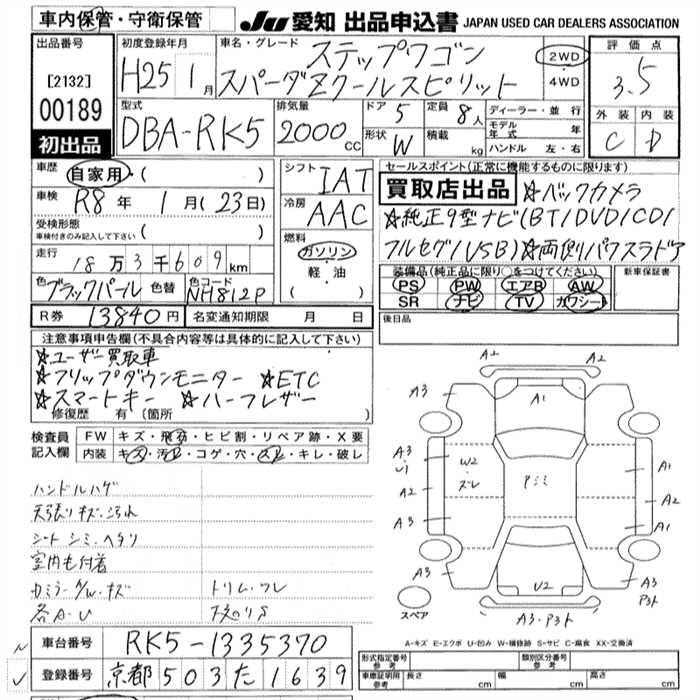 車内保管・守衛保管
JU 愛知 出品申込書 JAPAN USED CAR DEALERS ASSOCIATION
出品番号
[2132]
00189
初出品
初度登録年月
H25 1月
車名・グレード
ステップワゴン
スパーダZクールスピリット
2WD
・
4WD
評価点
3.5
外装 内装
C D
型式
DBA-RK5
排気量
2000cc
ドア 5
形状 W
定員 8人
積載 kg
ディーラー・並行
モデル年式 年
ハンドル 左・右
車歴 自家用・( )
車検 R8年 1月(23日)
受検形態
車検付きのみ記入して下さい ( )
走行 18万3千609km
色 ブラックパール 色替
色コード NH812P
シフト IAT
冷房 AAC
燃料
ガソリン
軽・油
( )
セールスポイント(正常に機能するものに限ります)
買取店出品 ☆バックカメラ
☆純正9型ナビ(BT/DVD/CD/
フルセグ/USB)☆両側パワスラドア
装備品(純正品に限り○をつけてください)
PS PW エアB AW
SR ナビ TV カワシート
新車保証書
R券 13840円
名変通知期限 月 日
後日品
注意事項申告欄(不具合内容等は具体的に記入して下さい)
☆ユーザー買取車
☆フリップダウンモニター ☆ETC
☆スマートキー ☆ハーフレザー
修復歴 有(箇所 )
検査員記入欄
FW キズ・飛石・ヒビ割・リペア跡・X要
内装 キズ・汚れ・コゲ・穴・スレ・キレ・破レ
ハンドルハゲ
天張りキズ・汚れ
シート シミ・ヘタリ
室内毛付着
カミラーダW・キズ
各A・U
トリム・ワレ
下廻りS
A2 A2
A3 A1 A3
A3
W2
ズレ
Pシミ
A1
A2 A2
A3 A1
A3 U2 A3
Pヨト
A3・Pヨト
スペア
A-キズ E-エクボ U-凹み W-補修跡 S-サビ C-腐食 XX-交換済
車台番号 RK5-1335370
登録番号 京都503た1639
形式指定番号参考
類別区分番号参考
車庫証明用参考 長さ cm 幅 cm 高さ cm